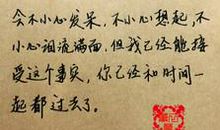 会不小心发呆，不小心想起，不
小心泪流满面，但我已经能接
受这个事实，你已经和时间一
起都过去了。